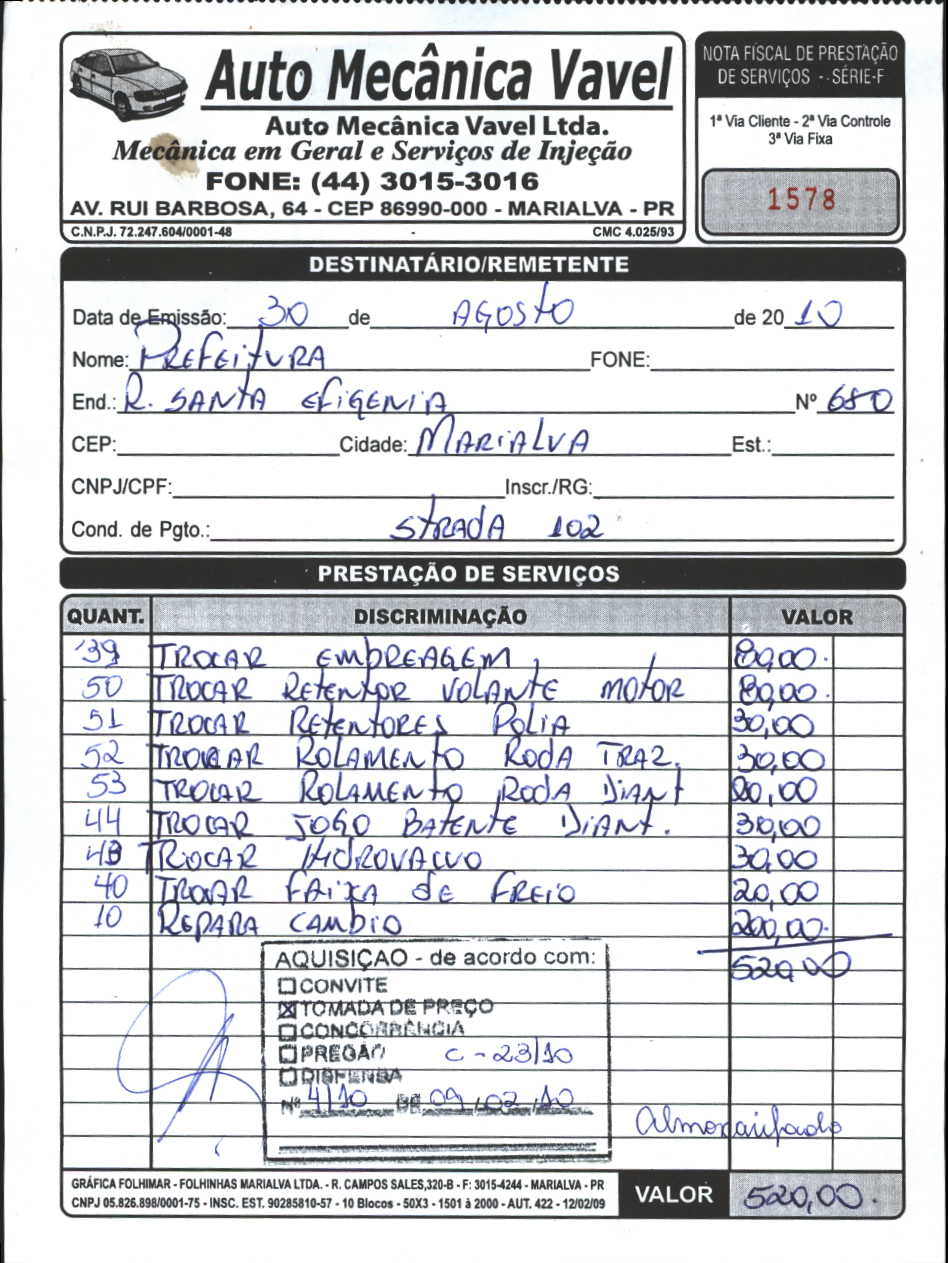 Auto Mecânica Vavel
Auto Mecânica Vavel Ltda.
Mecânica em Geral e Serviços de Injeção
FONE: (44) 3015-3016
AV. RUI BARBOSA, 64 - CEP 86990-000 - MARIALVA - PR
C.N.P.J. 72.247.604/0001-48 CMC 4.025/93
NOTA FISCAL DE PRESTAÇÃO
DE SERVIÇOS - SÉRIE-F
1ª Via Cliente - 2ª Via Controle
3ª Via Fixa
1578
DESTINATÁRIO/REMETENTE
Data de Emissão: 30 de AGOSTO de 2010
Nome: PREFEITURA FONE:
End.: R. SANTA EFIGENIA Nº 680
CEP: Cidade: MARIALVA Est.:
CNPJ/CPF: Inscr./RG:
Cond. de Pgto.: STRADA 102
PRESTAÇÃO DE SERVIÇOS
QUANT. DISCRIMINAÇÃO VALOR
39 TROCAR EMBREAGEM 80,00
50 TROCAR RETENTOR VOLANTE MOTOR 80,00
51 TROCAR RETENTORES POLIA 30,00
52 TROCAR ROLAMENTO RODA TRAZ. 30,00
53 TROCAR ROLAMENTO RODA DIANT 20,00
44 TROCAR JOGO BATENTE DIANT. 30,00
43 TROCAR HIDROVACUO 30,00
40 TROCAR FAIXA DE FREIO 20,00
10 REPARA CAMBIO 200,00
520,00
AQUISIÇAO - de acordo com:
CONVITE
TOMADA DE PREÇO
CONCORRÊNCIA
PREGÃO C - 23/10
DISPENSA
Nº 4/10 DE 09/02/10
Almoxarifado
GRÁFICA FOLHIMAR - FOLHINHAS MARIALVA LTDA. - R. CAMPOS SALES,320-B - F: 3015-4244 - MARIALVA - PR
CNPJ 05.826.898/0001-75 - INSC. EST. 90285810-57 - 10 Blocos - 50X3 - 1501 à 2000 - AUT. 422 - 12/02/09
VALOR 520,00